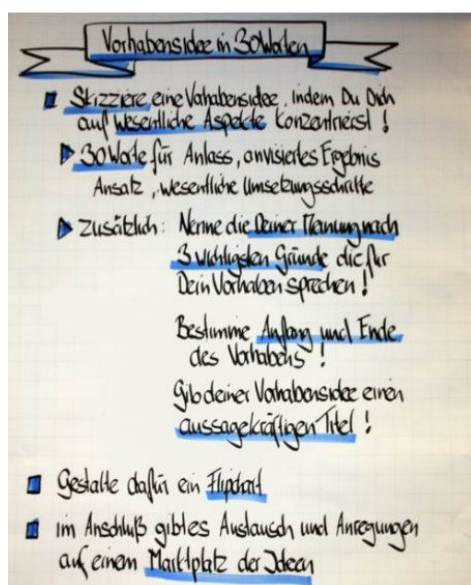 Vorhabensidee in 30 Worten
Skizziere eine Vorhabensidee, indem Du Dich
auf wesentliche Aspekte konzentrierst !
30 Worte für Anlass, anvisiertes Ergebnis
Ansatz, wesentliche Umsetzungsschritte
Zusätzlich: Nenne die Deiner Meinung nach
3 wichtigsten Gründe die für
Dein Vorhaben sprechen !
Bestimme Anfang und Ende
des Vorhabens !
Gib deiner Vorhabensidee einen
aussagekräftigen Titel !
Gestalte dafür ein Flipchart
im Anschluß gibt es Austausch und Anregungen
auf einem Marktplatz der Ideen